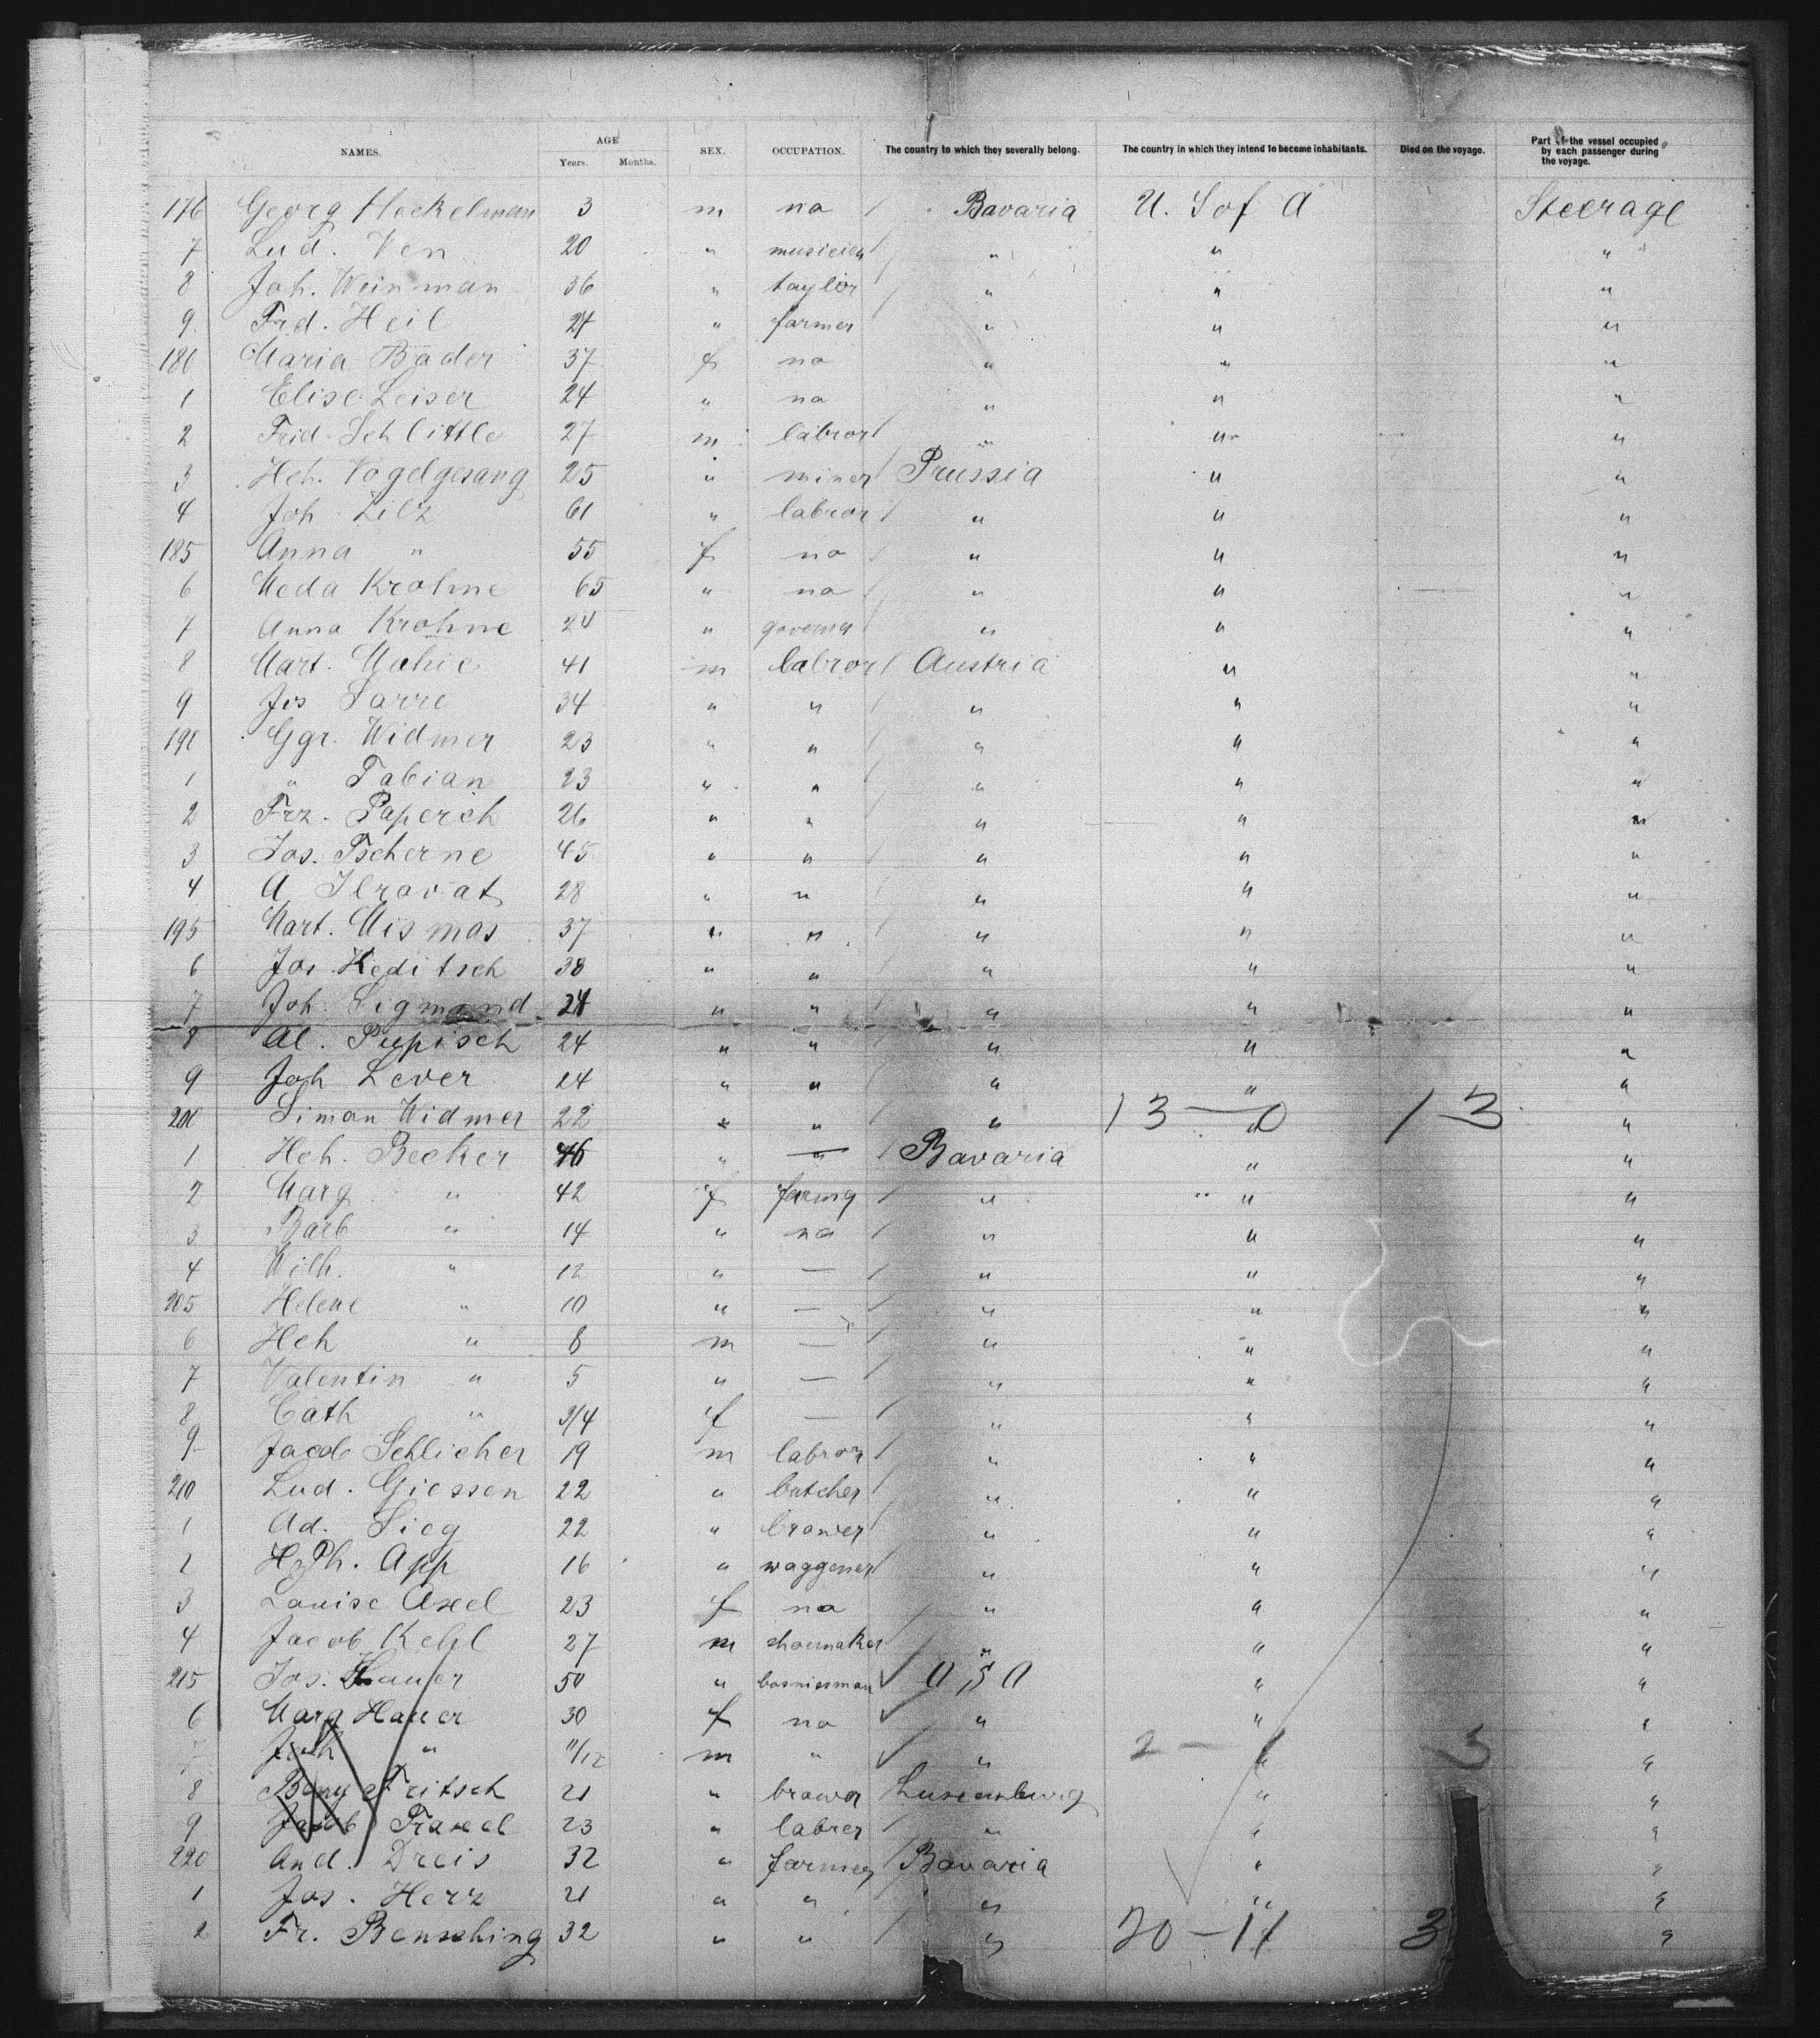 NAMES. AGE Years. Months. SEX. OCCUPATION. The country to which they severally belong. The country in which they intend to become inhabitants. Died on the voyage. Part of the vessel occupied by each passenger during the voyage.
176 Georg Hockelman 3 m na / Bavaria U. S of A Steerage
7 Lud. Ven 20 " musicien / " " "
8 Joh. Weinman 36 " taylor / " " "
9 Frd. Heil 24 " farmer " " "
180 Maria Bader 37 f no " " "
1 Elise Leiser 24 " na " " "
2 Frid. Schlittle 27 m labror / " " "
3 Hch. Vogelgesang 25 " miner / Prussia " "
4 Joh. Zilz 61 " labror / " " "
185 Anna " 55 f no / " " "
6 Meda Krohne 65 " na / " " "
7 Anna Krohne 24 " governer / " " "
8 Mart. Mahic 41 m labror / Austria " "
9 Jos Sarre 34 " " / " " "
190 Ggr. Widmer 23 " " / " " "
1 " Fabian 23 " " / " " "
2 Frz. Paperch 26 " " / " " "
3 Jos. Tscherne 45 " " / " " "
4 A 28 " " / " " "
195 Mart. Mismas 37 " " / " " "
6 Jos. Keditsch 38 " " / " " "
7 Joh. Sigmond 24 " " / " " "
8 Al. Pupisch 24 " " / " " "
9 Joh Lever 24 " " / " " "
200 Siman Widmer 22 " " / " 13 — 0 " 13 "
1 Hch. Becker 46 " " / Bavaria " "
2 Marg " 42 f / " " "
3 Barb " 14 " na / " " "
4 Wilh. " 12 " — / " " "
205 Helene " 10 " — / " " "
6 Hch " 8 m — / " " "
7 Valentin " 5 " — / " " "
8 Cath " 3/4 f — / " " "
9 Jacob Schlicher 19 m labror / " " "
210 Lud. Giessen 22 " butcher / " " "
1 Ad. Sieg 22 " brower / " " "
2 H. Ph. App 16 " waggener / " " "
3 Louise Axel 23 f na / " " "
4 Jacob Kehl 27 m shoemaker / " " "
215 Jos. Hauer 50 " busniesman ✓ U S A " "
6 Marg Hauer 30 f no ✓ " " "
7 " 11/12 m " ✓ " 2 — 1 " 3 "
8 Fritsch 21 " brower Luxemburg " "
9 Jacob 23 " labrer / " " "
220 And. Dreis 32 " farmer / Bavaria " "
1 Jos. Herz 21 " " / " " "
2 Fr. Bensching 32 " " / " 20 — 14 3 "